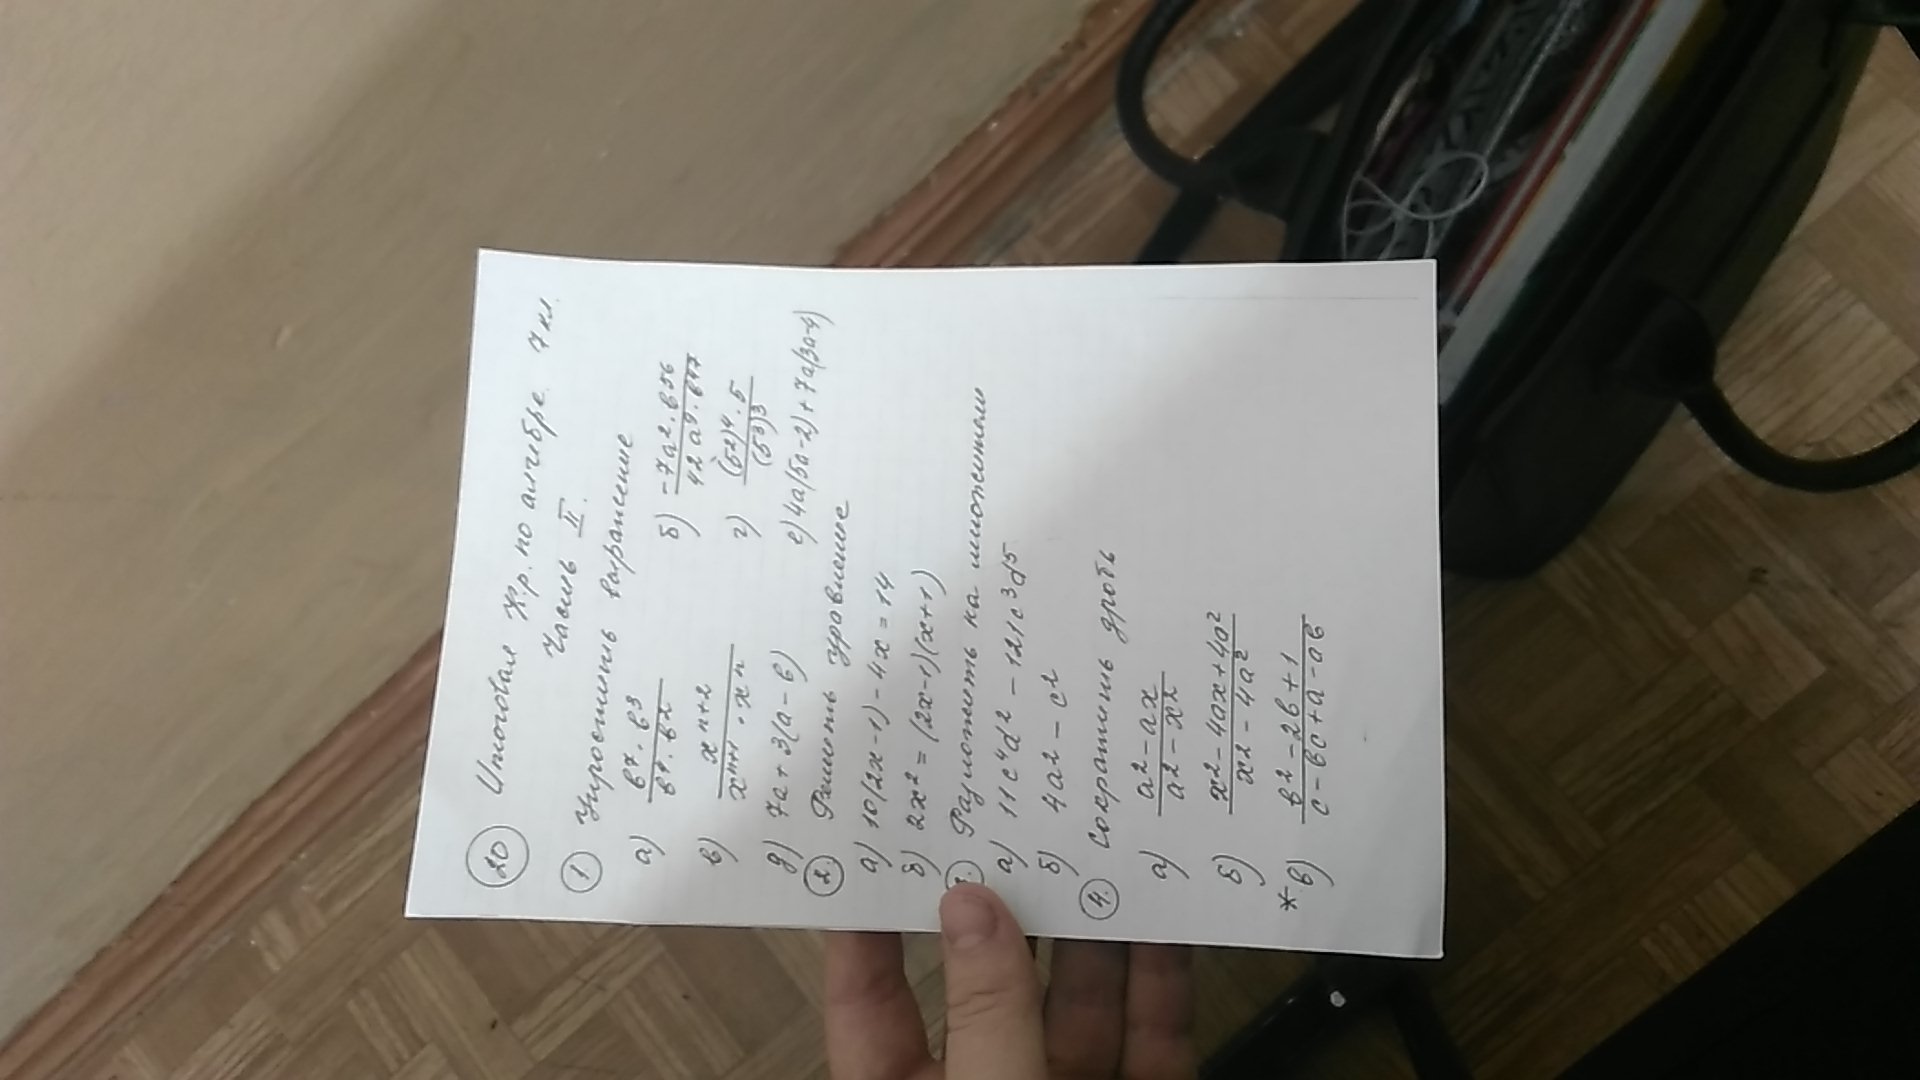 20 Итоговая К.р. по алгебре. 7 кл.
Часть II.
1 Упростить выражение
а) в⁷·в³ / в⁴·в² б) -7а²·в⁵⁶ / 42а⁹·в
в) xⁿ⁺² / xⁿ⁺¹·xⁿ г) (5²)⁴·5 / (5³)³
д) 7а+3(а-в) е) 4а(5а-2)+7а(3а-4)
2. Решить уровнение
а) 10(2x-1)-4x=14
б) 2x²=(2x-1)(x+1)
Разложить на множители
а) 11c⁴d² - 121c³d⁵
б) 4а² - с²
4. Сократить дробь
а) а²-аx / а²-x²
б) x²-4аx+4а² / x²-4а²
*в) в²-2в+1 / с-вс+а-ав